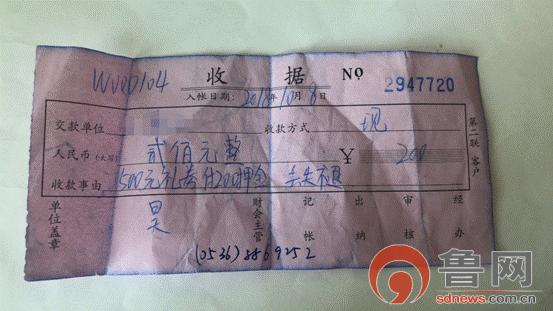 WV0D104 收 据 № 2947720
入帐日期：2016年10月6日
交款单位 收款方式 现
人民币（大写） 贰佰元整 ¥ 200
收款事由 1500元礼券付200押金 丢失不退
第二联 客户
单位盖章 昊 财会主管 记帐 出纳 审核 经办
(0536) 8869252
鲁网
sdnews.com.cn